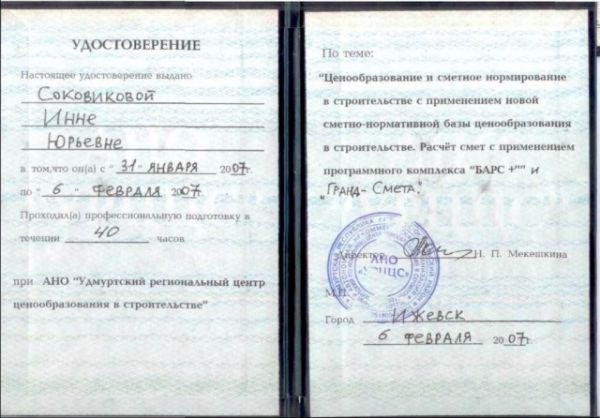 УДОСТОВЕРЕНИЕ
Настоящее удостоверение выдано
Соковиковой
Инне
Юрьевне
в том,что он(а) с "31" ЯНВАРЯ 2007г.
по "6" ФЕВРАЛЯ 2007г.
Проходил(а) профессиональную подготовку в
течении 40 часов
при АНО "Удмуртский региональный центр
ценообразования в строительстве"
По теме:
"Ценообразование и сметное нормирование
в строительстве с применением новой
сметно-нормативной базы ценообразования
в строительстве. Расчёт смет с применением
программного комплекса "БАРС +"" и
"Гранд-Смета".
Директор Н. П. Мекешкина
АНО
М.П.
Город ИЖЕВСК
6 ФЕВРАЛЯ 2007г.